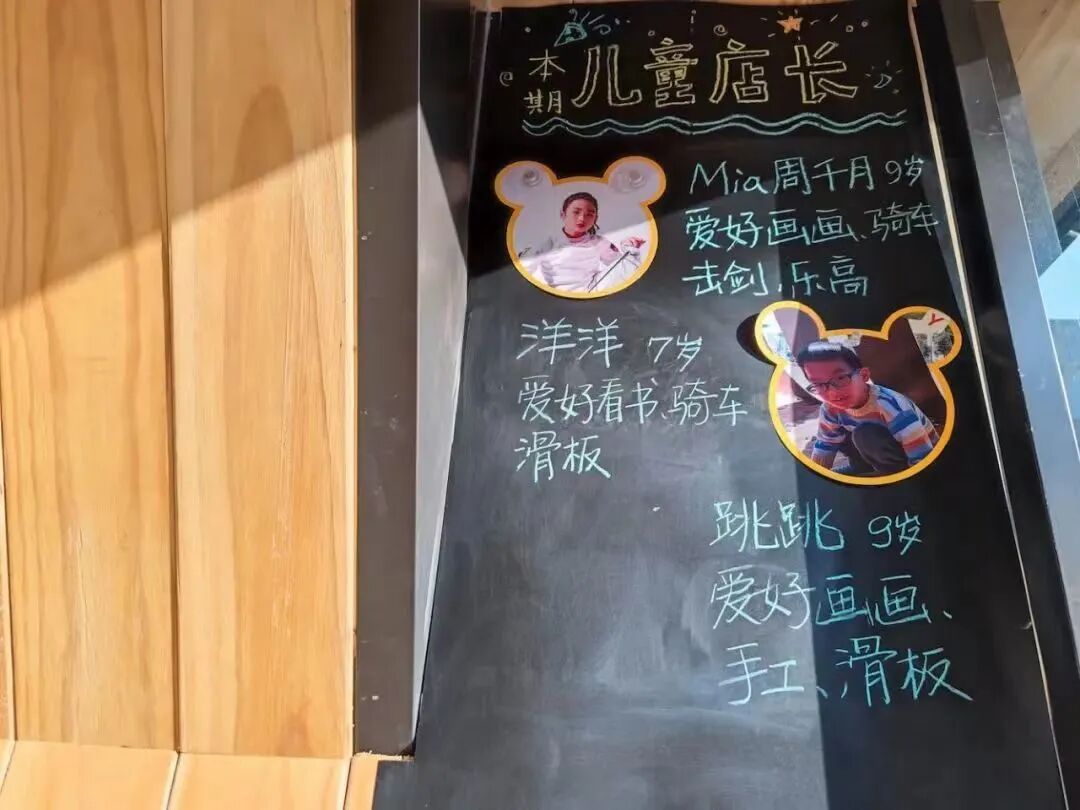 本期儿童店长
Mia周千月 9岁
爱好画画、骑车
击剑、乐高
洋洋 7岁
爱好看书、骑车
滑板
跳跳 9岁
爱好画画、
手工、滑板